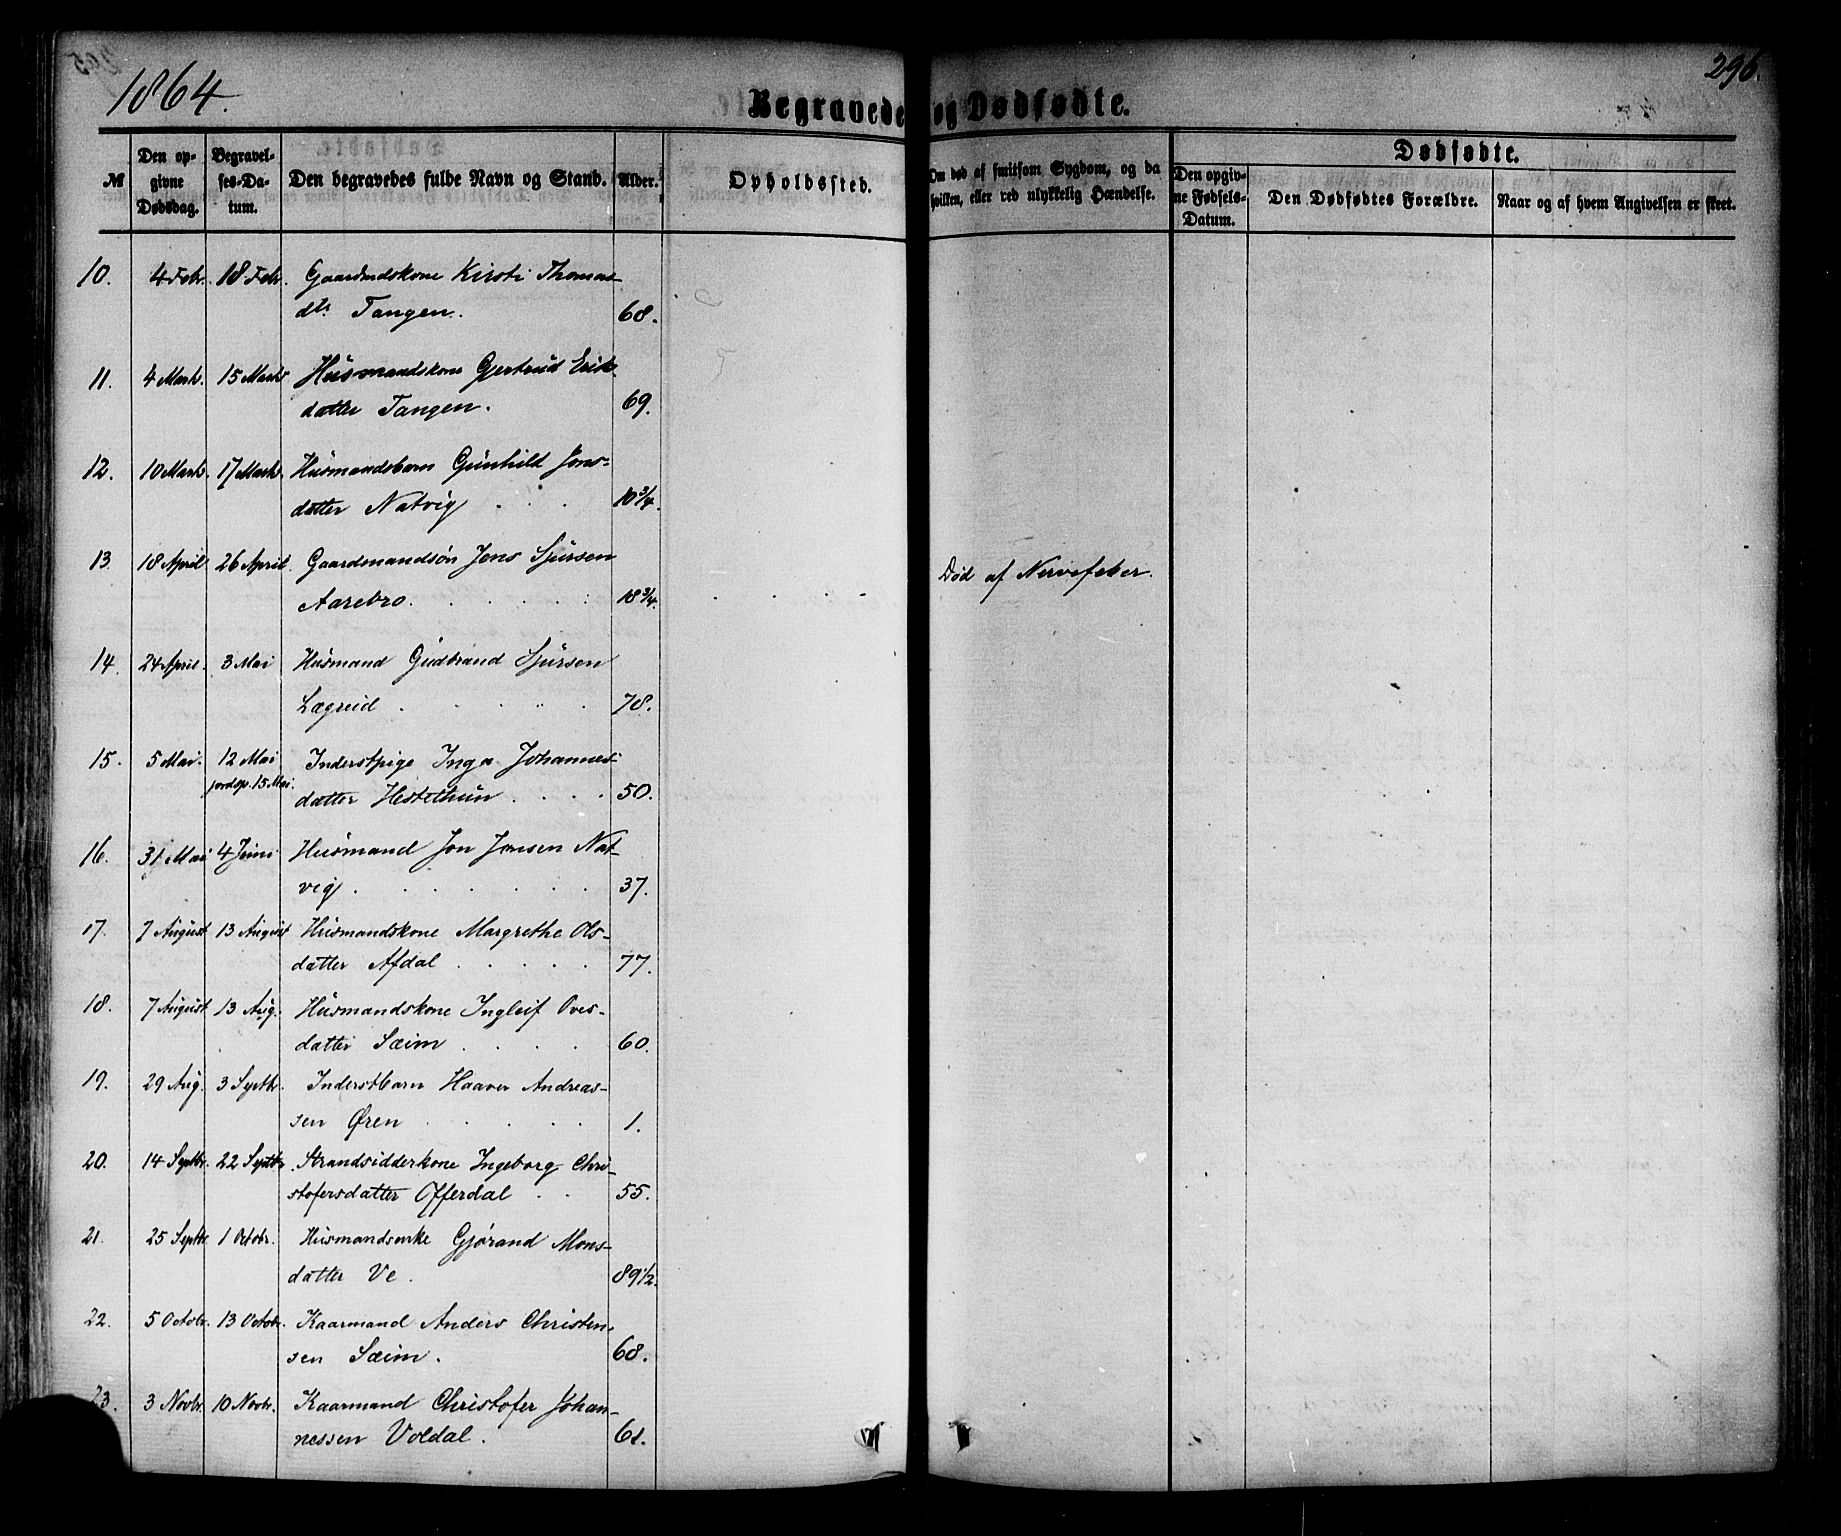 1864.
296.
Begravede og Dødfødte.
M
Den opgivne Dødsdag.
Begravelses-Datum.
Den begravedes fulde Navn og Stand.
Alder.
Opholdssted.
Om død af smitsom Sygdom, og da hvilken, eller ved ulykkelig Hændelse.
Dødfødte.
Den opgivne Fødsels-Datum.
Den Dødfødtes Forældre.
Naar og af hvem Angivelsen er skeet.
10. 4 Febr. 18 Febr. Gaardmdskone Kirsti Thomas
dtr Tangen. 68.
11. 4 Marts. 15 Marts Husmandskone Gjertrud Erik
datter Tangen. 69.
12. 10 Marts. 17 Marts. Husmandsbarn Gunhild Jons-
datter Natvig 10 3/4.
13. 18 April 26 April. Gaardmandsøn Jens Sjursen
Aarebro. 18 3/4. Død af Nervefeber.
14. 24 April. 3 Mai Husmand Gudbrand Sjursen
Lægreid 78.
15. 5 Mai. 12 Mai Inderstpige Inga Johannes-
jordsp. 15 Mai. datter Hestethun 50.
16. 31 Mai 4 Juni Husmand Jon Jensen Nat-
vig. 37.
17. 7 August 13 August Husmandskone Margrethe Ols-
datter Afdal 77.
18. 7 August 13 Aug. Husmandskone Ingleif Oves-
datter Sæim 60.
19. 29 Aug. 3 Septbr. Inderstbarn Haaver Andreas-
sen Øren 1.
20. 14 Septbr. 22 Septbr Strandsidderkone Ingeborg Chri-
stofersdatter Offerdal 55.
21. 25 Septbr 1 Octobr. Husmandsenke Gjørand Mons-
datter Ve. 89 1/2.
22. 5 Octobr. 13 Octobr. Kaarmand Anders Christen-
sen Sæim. 68.
23. 3 Novbr. 10 Novbr. Kaarmand Christofer Johan-
nessen Voldal. 61.